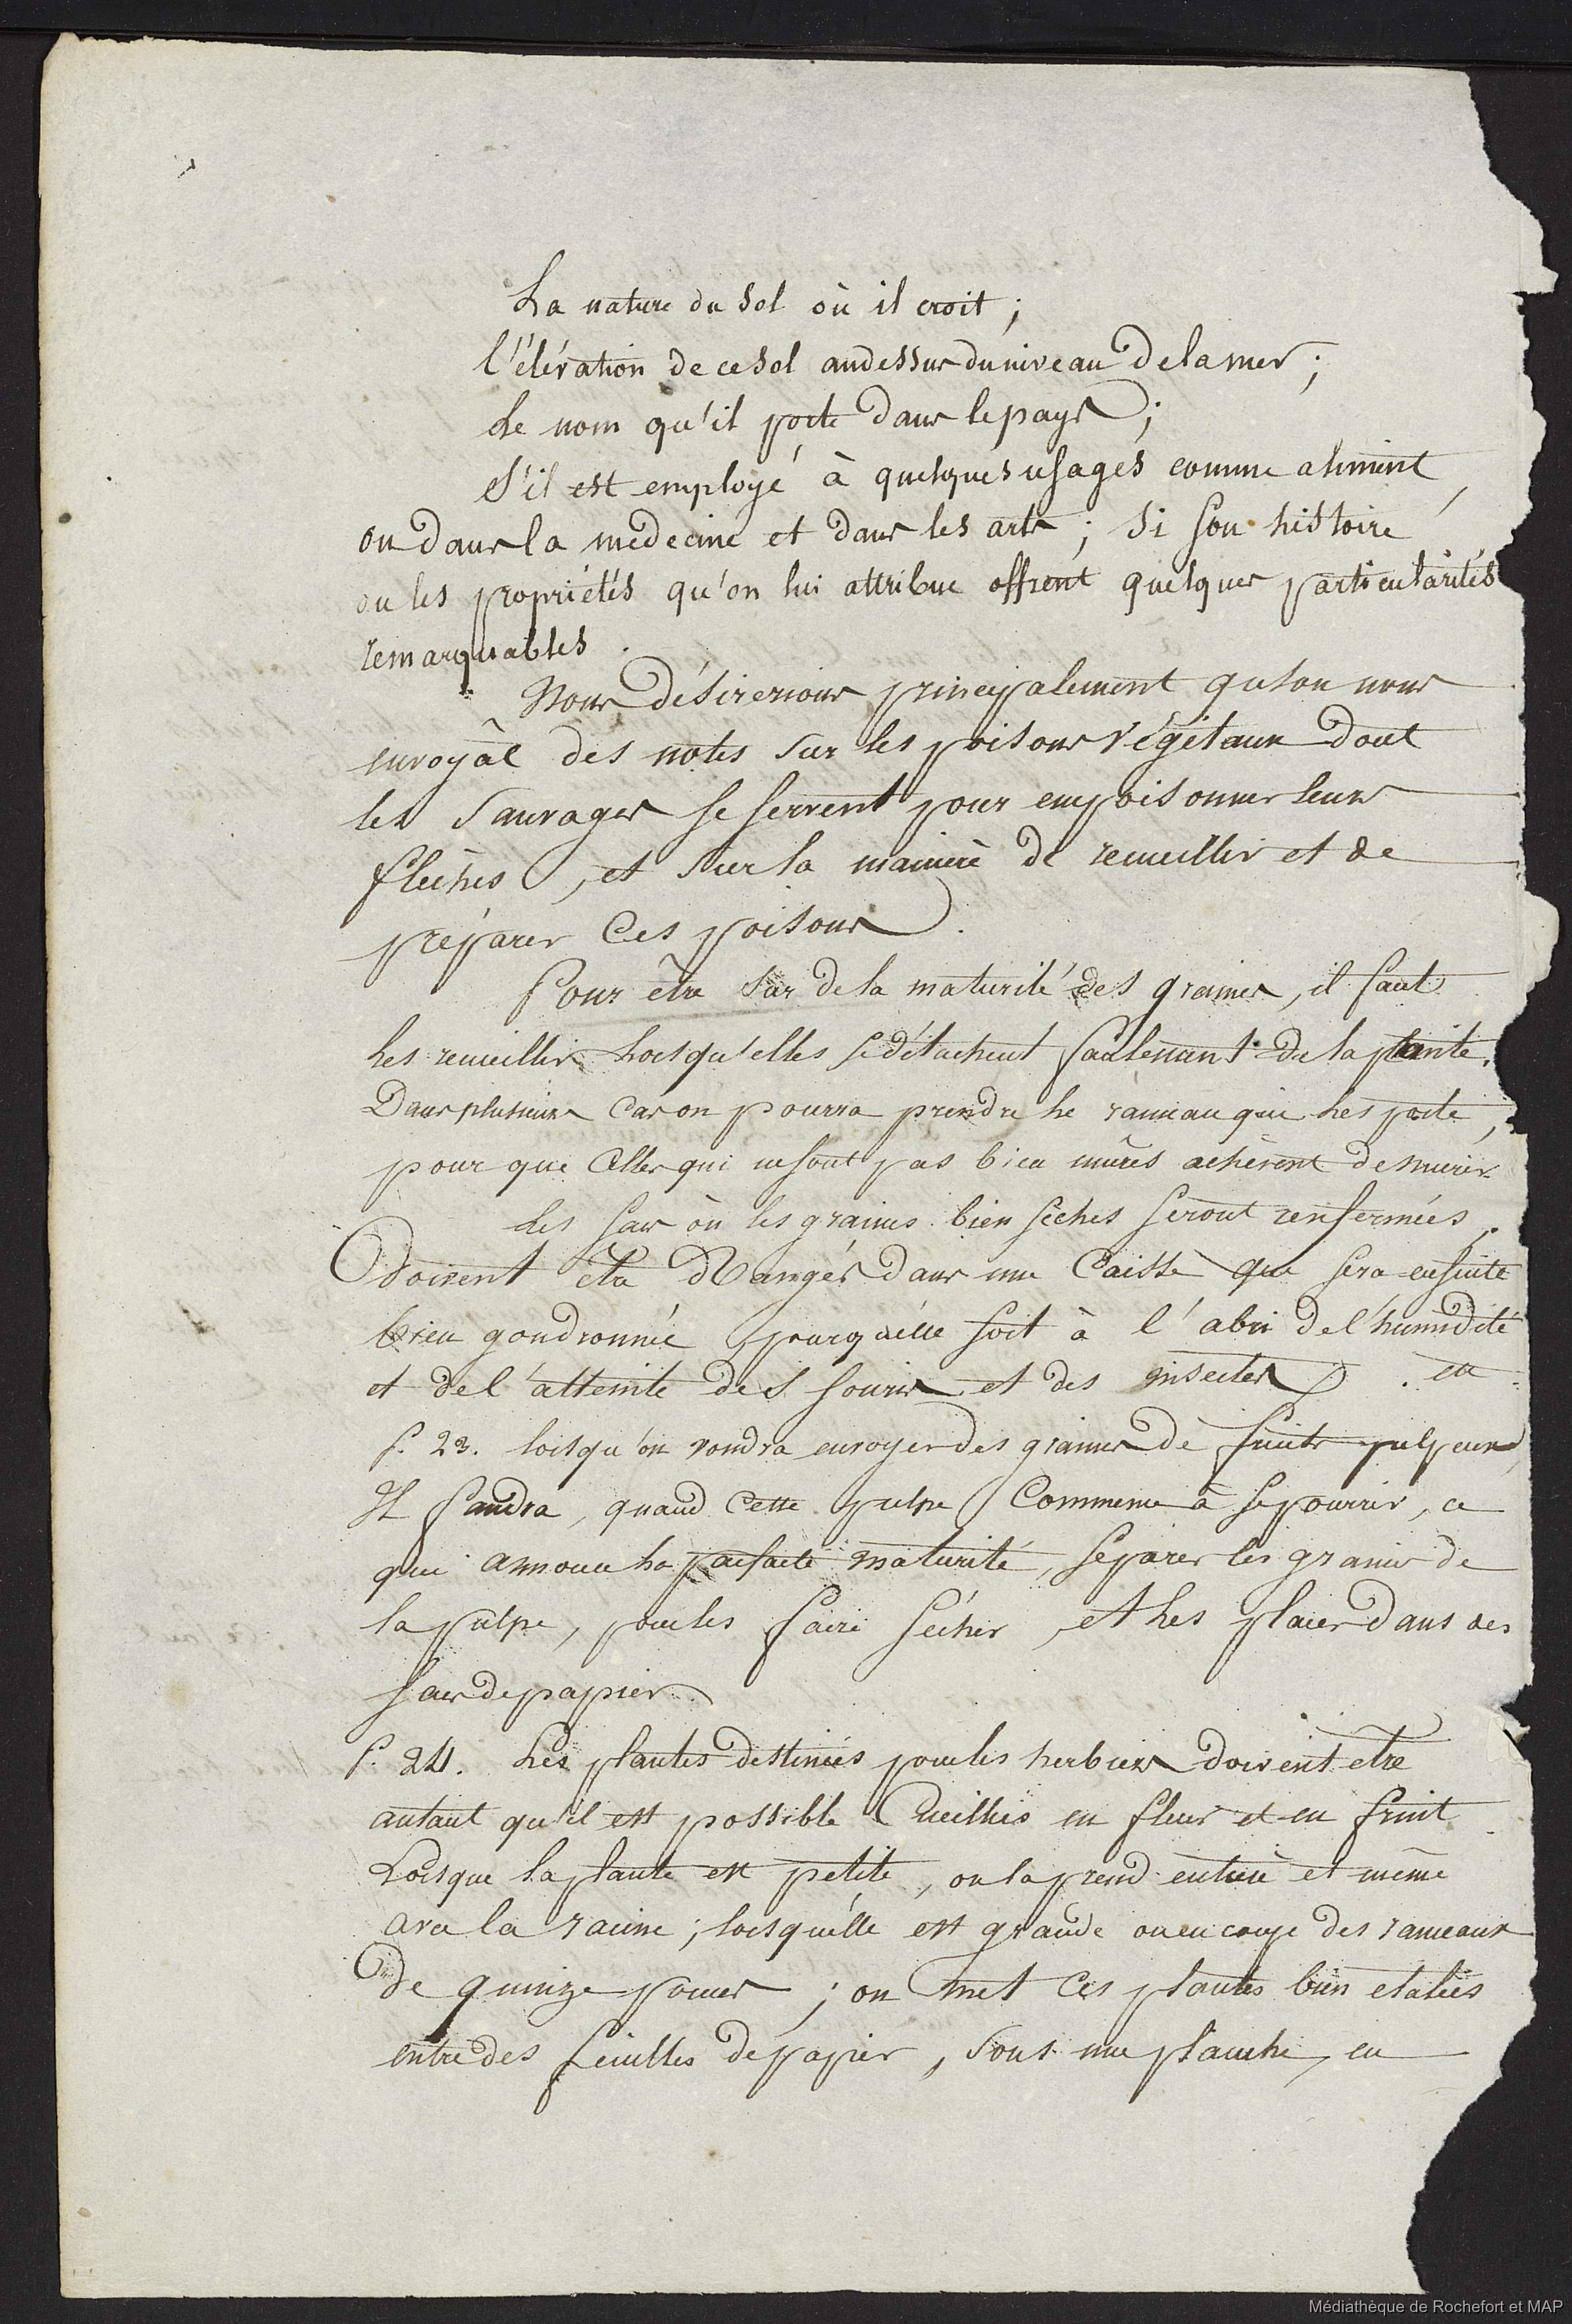 La nature du sol où il croit ;
l'élévation de ce sol audessus du niveau de la mer ;
Le nom qu'il porte dans le pays ;
S'il est employé à quelques usages comme aliment,
ou dans la médecine et dans les arts ; si son histoire
ou les propriétés qu'on lui attribue offrent quelques particularités
remarquables.
Nous désirerions principalement qu'on nous
envoyât des notes sur les poisons végétaux dont
les sauvages se servent pour empoisonner leurs
flèches, et sur la manière de recueillir et de
préparer ces poisons.
Pour être sur de la maturité des graines, il faut
les recueillir lorsqu'elles se détachent facilement de la plante.
Dans plusieurs cas on pourra prendre le rameau qui les porte,
pour que celles qui ne sont pas bien mûres achèvent de murir
Les sacs où les graines bien sèches seront renfermées
doivent être Rangés dans une caisse que sera ensuite
bien goudronnée pour qu'elle soit à l'abri de l'humidité
et de l'atteinte des souris et des insectes. en
P. 23. lorsqu'on voudra envoyer des graines de fruits pulpeux,
Il faudra, quand cette pulpe commence à se pourrir, ce
qui annonce la parfaite maturité, séparer les graines de
la pulpe, pour les faire sécher, et les placer dans des
sacs de papier.
P. 24. Les plantes destinées pour les herbiers doivent etre
autant qu'il est possible Cueillies en fleur et en fruit.
Lorsque la plante est petite, on la prend entière et même
avec la racine ; lorsqu'elle est grande on en coupe des rameaux
de quinze pouces ; on met ces plantes bien etalées
entre des feuilles de papier, sous une planche, en
Médiathèque de Rochefort et MAP